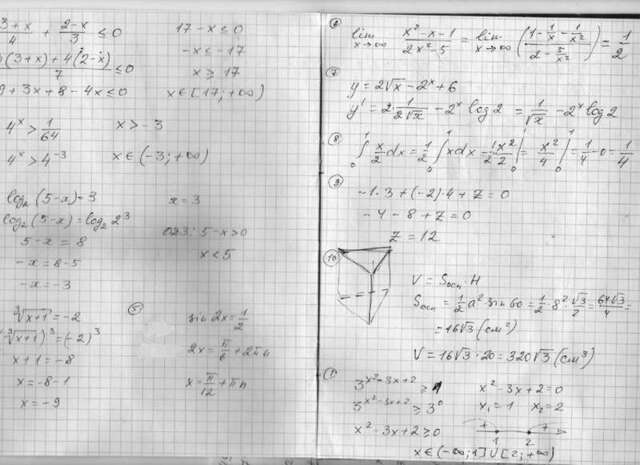 3+x/4 + 2-x/3 ≤ 0
(3+x)+4(2-x)/7 ≤ 0
9+3x+8-4x ≤ 0
17-x ≤ 0
-x ≤ -17
x ≥ 17
x ∈ [17; +∞)
4^x > 1/64
4^x > 4^-3
x > -3
x ∈ (-3; +∞)
log₂(5-x)=3
log₂(5-x)=log₂2³
5-x = 8
-x = 8-5
-x = -3
x = 3
ОДЗ: 5-x>0
x < 5
∛x+1 = -2
(∛x+1)³=(-2)³
x+1 = -8
x = -8-1
x = -9
⑤
sin2x = 1/2
2x = π/6 + 2πn
x = π/12 + πn
⑥ lim x→∞ x²-x-1/2x²-5 = lim x→∞ (1-1/x-1/x²/2-5/x²) = 1/2
⑦
y = 2√x - 2^x + 6
y' = 2·1/2√x - 2^x log2 = 1/√x - 2^x log2
⑧ ∫₀¹ x/2 dx = 1/2 ∫₀¹ xdx = 1/2 x²/2 |₀¹ = x²/4 |₀¹ = 1/4 - 0 = 1/4
⑨
-1·3+(-2)·4+z=0
-4-8+z=0
z = 12
⑩
V = Sосн·H
Sосн = 1/2 a² sin60 = 1/2·8²·√3/2 = 64√3/4 =
= 16√3 (см²)
V = 16√3·20 = 320√3 (см³)
3^x²-3x+2 ≥ 1
3^x²-3x+2 ≥ 3⁰
x²-3x+2 ≥ 0
x²-3x+2=0
x₁=1 x₂=2
+ - +
1 2
x ∈ (-∞; 1] ∪ [2; +∞)